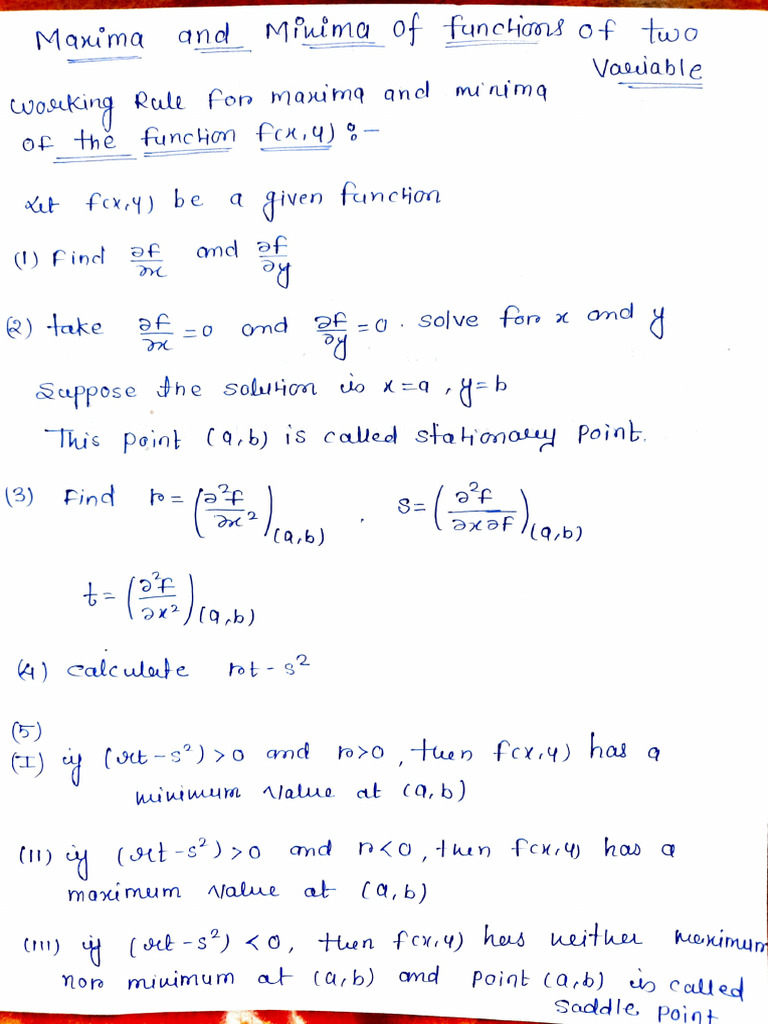 Maxima and Minima of functions of two
Variable
Working Rule for maxima and minima
of the function f(x,y) :-
Let f(x,y) be a given function
(1) Find ∂f/∂x and ∂f/∂y
(2) take ∂f/∂x = 0 and ∂f/∂y = 0 . solve for x and y
Suppose the solution is x=a , y=b
This point (a,b) is called stationary point.
(3) Find r = (∂²f/∂x²)(a,b) . s = (∂²f/∂x∂f)(a,b)
t = (∂²f/∂x²)(a,b)
(4) calculate rt - s²
(5)
(I) if (rt - s²) > 0 and r>0 , then f(x,y) has a
minimum value at (a,b)
(II) if (rt - s²) > 0 and r<0 , then f(x,y) has a
maximum value at (a,b)
(III) if (rt - s²) < 0, then f(x,y) has neither maximum
nor minimum at (a,b) and point (a,b) is called
saddle point